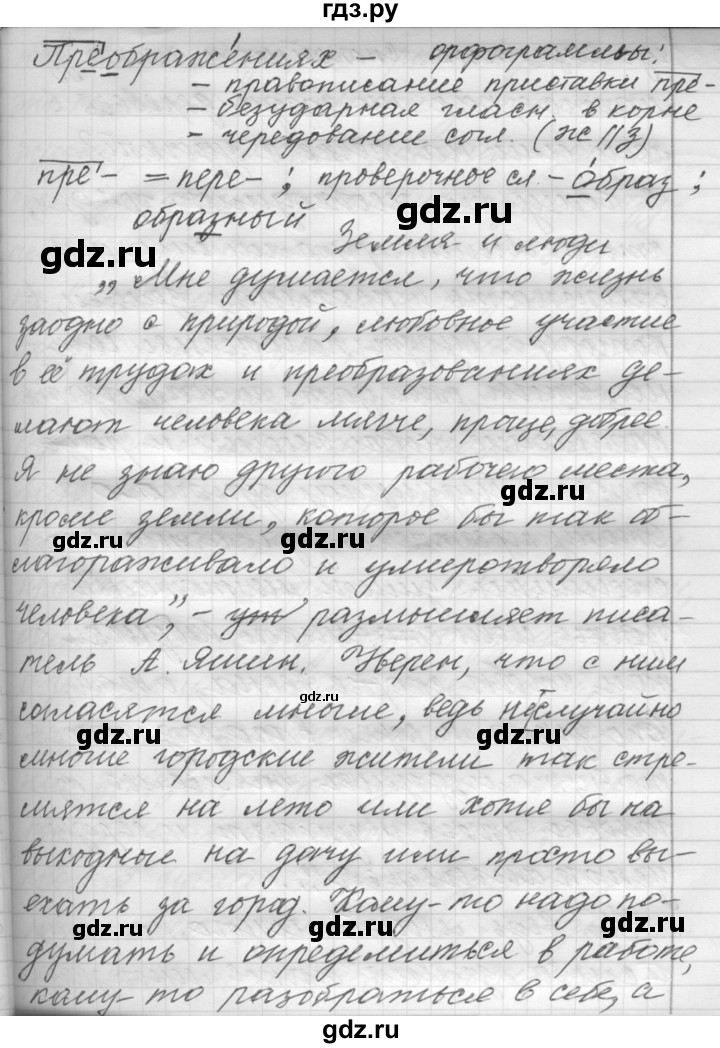 гдз.ру
Преображениях - орфограммы:
- правописание приставки пре-
- безударная гласн. в корне
- чередование согл. (ж || з)
пре- = пере-; проверочное сл. - образ;
образный
Земля и люди
„Мне думается, что жизнь
заодно с природой, любовное участие
в её трудах и преобразованиях де-
лают человека мягче, проще, добрее.
Я не знаю другого рабочего места,
кроме земли, которое бы так об-
лагораживало и умиротворяло
человека”, - размышляет писа-
тель А. Яшин. Уверен, что с ним
согласятся многие, ведь неслучайно
многие городские жители так стре-
мятся на лето или хотя бы на
выходные на дачу или просто вы-
ехать за город. Кому-то надо по-
думать и определиться в работе,
кому-то разобраться в себе, а
gdz.ru
gdz.ru
gdz.ru
gdz.ru
gdz.ru
gdz.ru
gdz.ru
gdz.ru
gdz.ru
gdz.ru
gdz.ru
gdz.ru